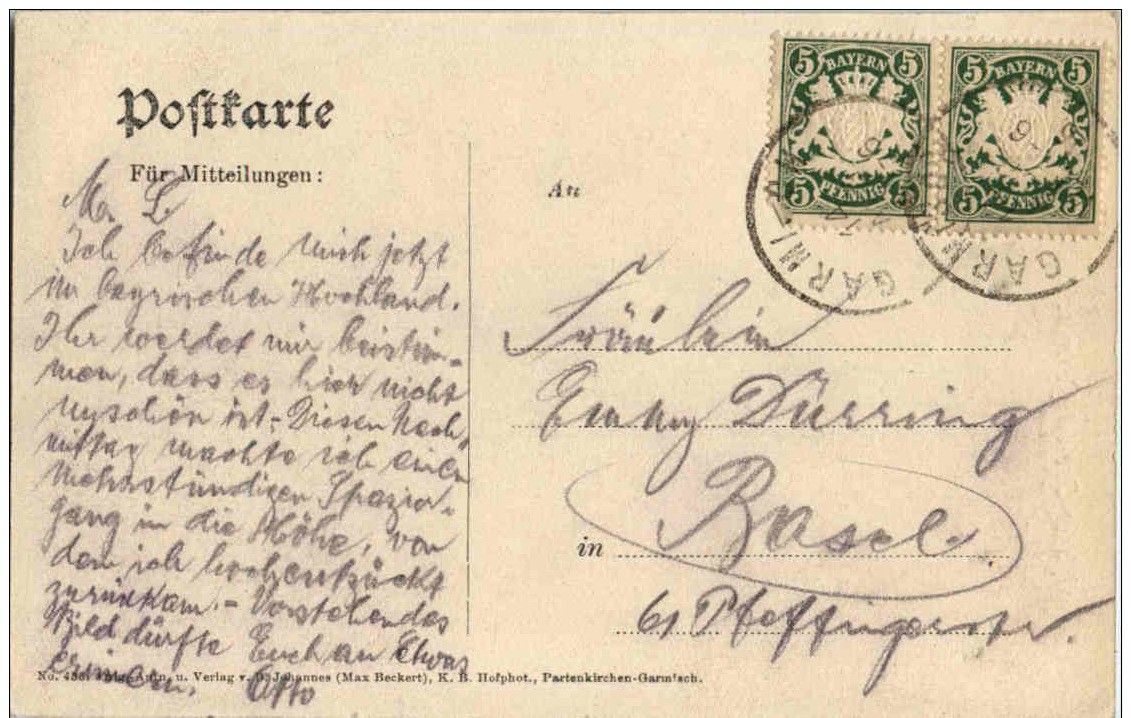 Postkarte
Für Mitteilungen:
M. L.
Ich befinde mich jetzt
im bayrischen Hochland.
Ihr werdet mir beistim-
men, dass es hier nicht
unschön ist. - Diesen Nach-
mittag machte ich einen
mehrstündigen Spazier-
gang in die Höhe, von
dem ich hochentzückt
zurückkam. - Vorstehendes
Bild dürfte Euch an Etwas
erinnern. Otto
An
5 BAYERN 5
5 PFENNIG 5
5 BAYERN 5
5 PFENNIG 5
GARMI
GARMI
Fräulein
Emmy Dürring
in Basel
61 Pfeffingerstr.
Aufn. u. Verlag v. B. Johannes (Max Beckert), K. B. Hofphot., Partenkirchen-Garmisch.